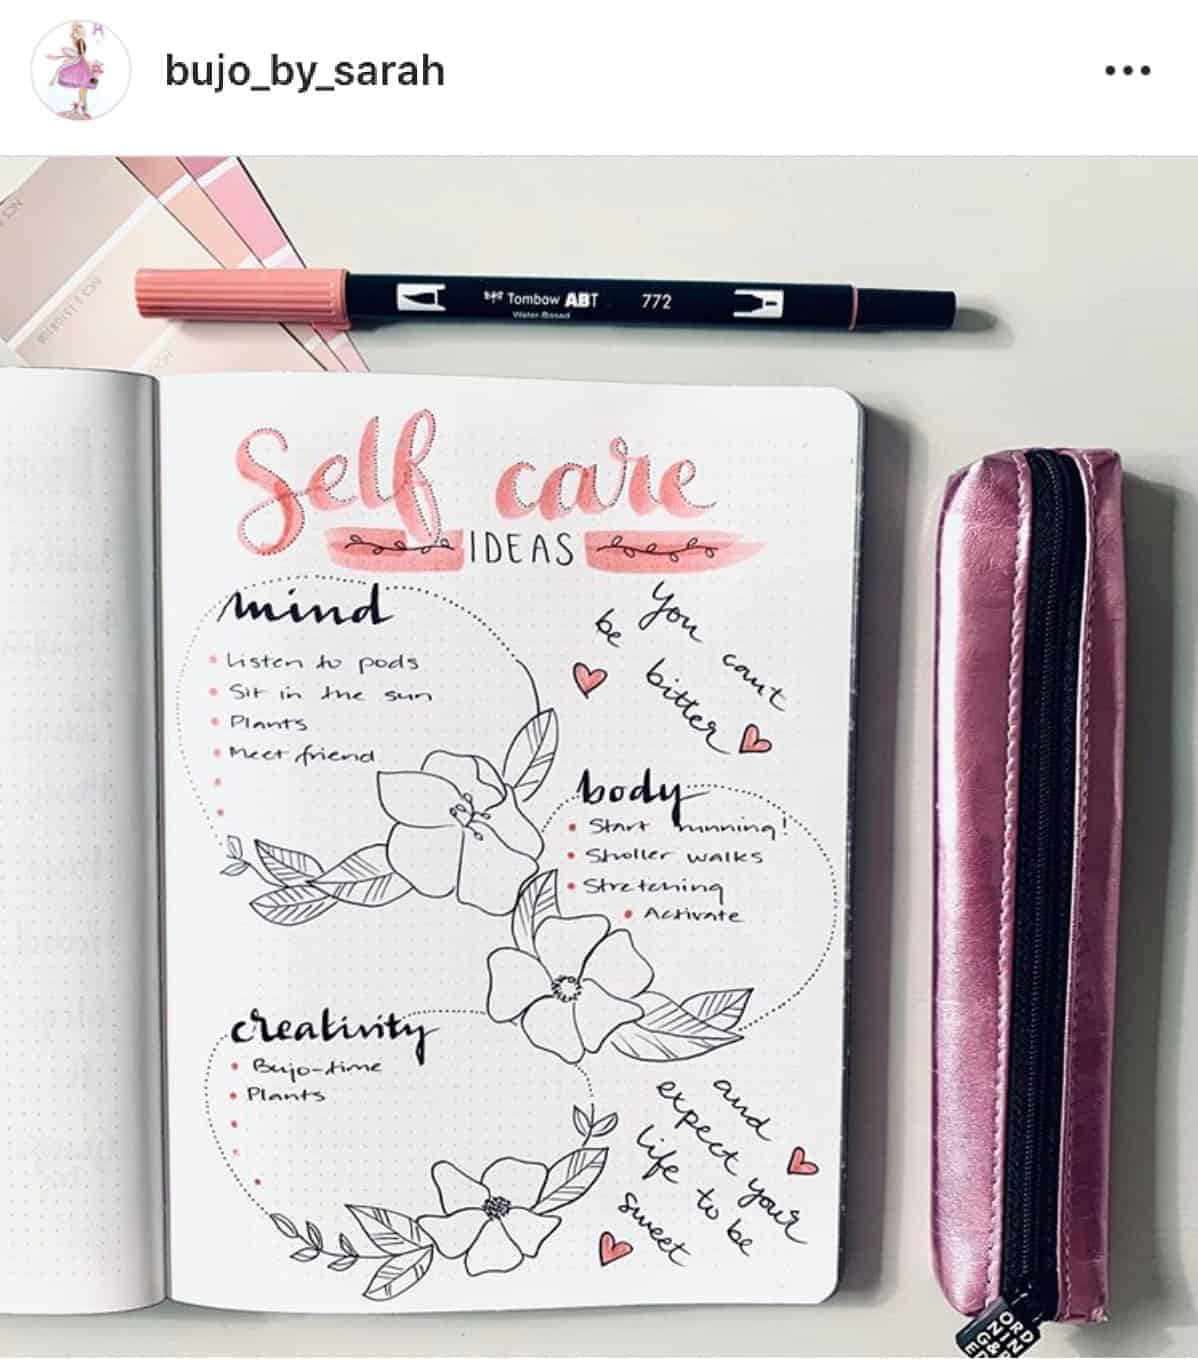 bujo_by_sarah
Tombow ABT 772
Water-Based
Self care
IDEAS
mind
Listen to pods
Sit in the sun
Plants
Meet friend
You cant
be bitter
body
Start running!
Stroller walks
Stretching
Activate
creativity
Bujo-time
Plants
and
expect your
life to be
sweet
ORD
NIN
G&